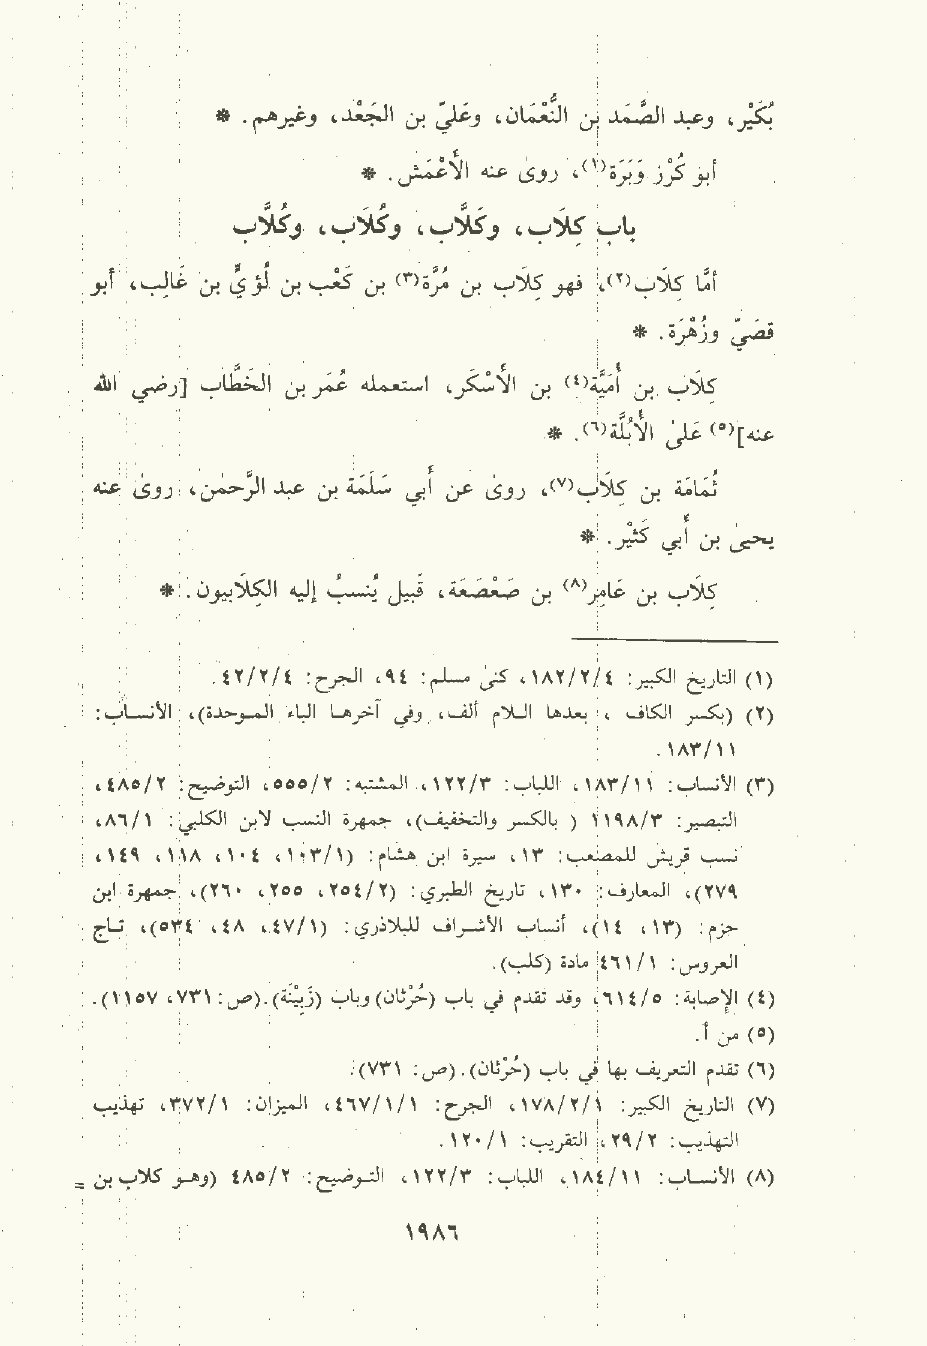 بُكَيْر، وعبد الصَّمَد بن النُّعْمَان، وعَليّ بن الجَعْد، وغيرهم. *
أبو كُرْز وَبَرَة(١)، روىٰ عنه الأَعْمَش. *
باب كِلَاب، وكَلَّاب، وكُلَاب، وكُلَّاب
أمَّا كِلَاب(٢)، فهو كِلَاب بن مُرَّة(٣) بن كَعْب بن لُؤيّ بن غَالِب، أبو
قصَيّ وزُهْرَة. *
كِلَاب بن أُمَيَّة(٤) بن الأَسْكَر، استعمله عُمَر بن الخَطَّاب [رضي الله
عنه](٥) عَلىٰ الأُبُلَّة(٦). *
ثُمَامَة بن كِلَاب(٧)، روىٰ عن أبي سَلَمَة بن عبد الرَّحمٰن، روىٰ عنه
يحيىٰ بن أبي كَثيْر. *
كِلَاب بن عَامِر(٨) بن صَعْصَعَة، قَبيل يُنسبُ إليه الكِلَابيون. *
(١) التاريخ الكبير: ١٨٢/٢/٤، كنىٰ مسلم: ٩٤، الجرح: ٤٢/٢/٤.
(٢) (بكسر الكاف، بعدها لام ألف، وفي آخرها الباء الموحدة)، الأنساب:
١٨٣/١١.
(٣) الأنساب: ١٨٣/١١، اللباب: ١٢٢/٣، المشتبه: ٥٥٥/٢، التوضيح: ٤٨٥/٢،
التبصير: ١١٩٨/٣ ( بالكسر والتخفيف)، جمهرة النسب لابن الكلبي: ٨٦/١،
نسب قريش للمصعب: ١٣، سيرة ابن هشام: (١٠٣/١، ١٠٤، ١١٨، ١٤٩،
٢٧٩)، المعارف: ١٣٠، تاريخ الطبري: (٢٥٤/٢، ٢٥٥، ٢٦٠)، جمهرة ابن
حزم: (١٣، ١٤)، أنساب الأشراف للبلاذري: (٤٧/١، ٤٨، ٥٣٤)، تاج
العروس: ٤٦١/١ مادة (كلب).
(٤) الإصابة: ٦١٤/٥، وقد تقدم في باب (حُرْثان) وباب (زَبِيْنَة).(ص: ٧٣١، ١١٥٧).
(٥) من أ.
(٦) تقدم التعريف بها في باب (حُرْثان).(ص: ٧٣١).
(٧) التاريخ الكبير: ١٧٨/٢/١، الجرح: ٤٦٧/١/١، الميزان: ٣٧٢/١، تهذيب
التهذيب: ٢٩/٢، التقريب: ١٢٠/١.
(٨) الأنساب: ١٨٤/١١، اللباب: ١٢٢/٣، التوضيح: ٤٨٥/٢ (وهو كلاب بن =
١٩٨٦